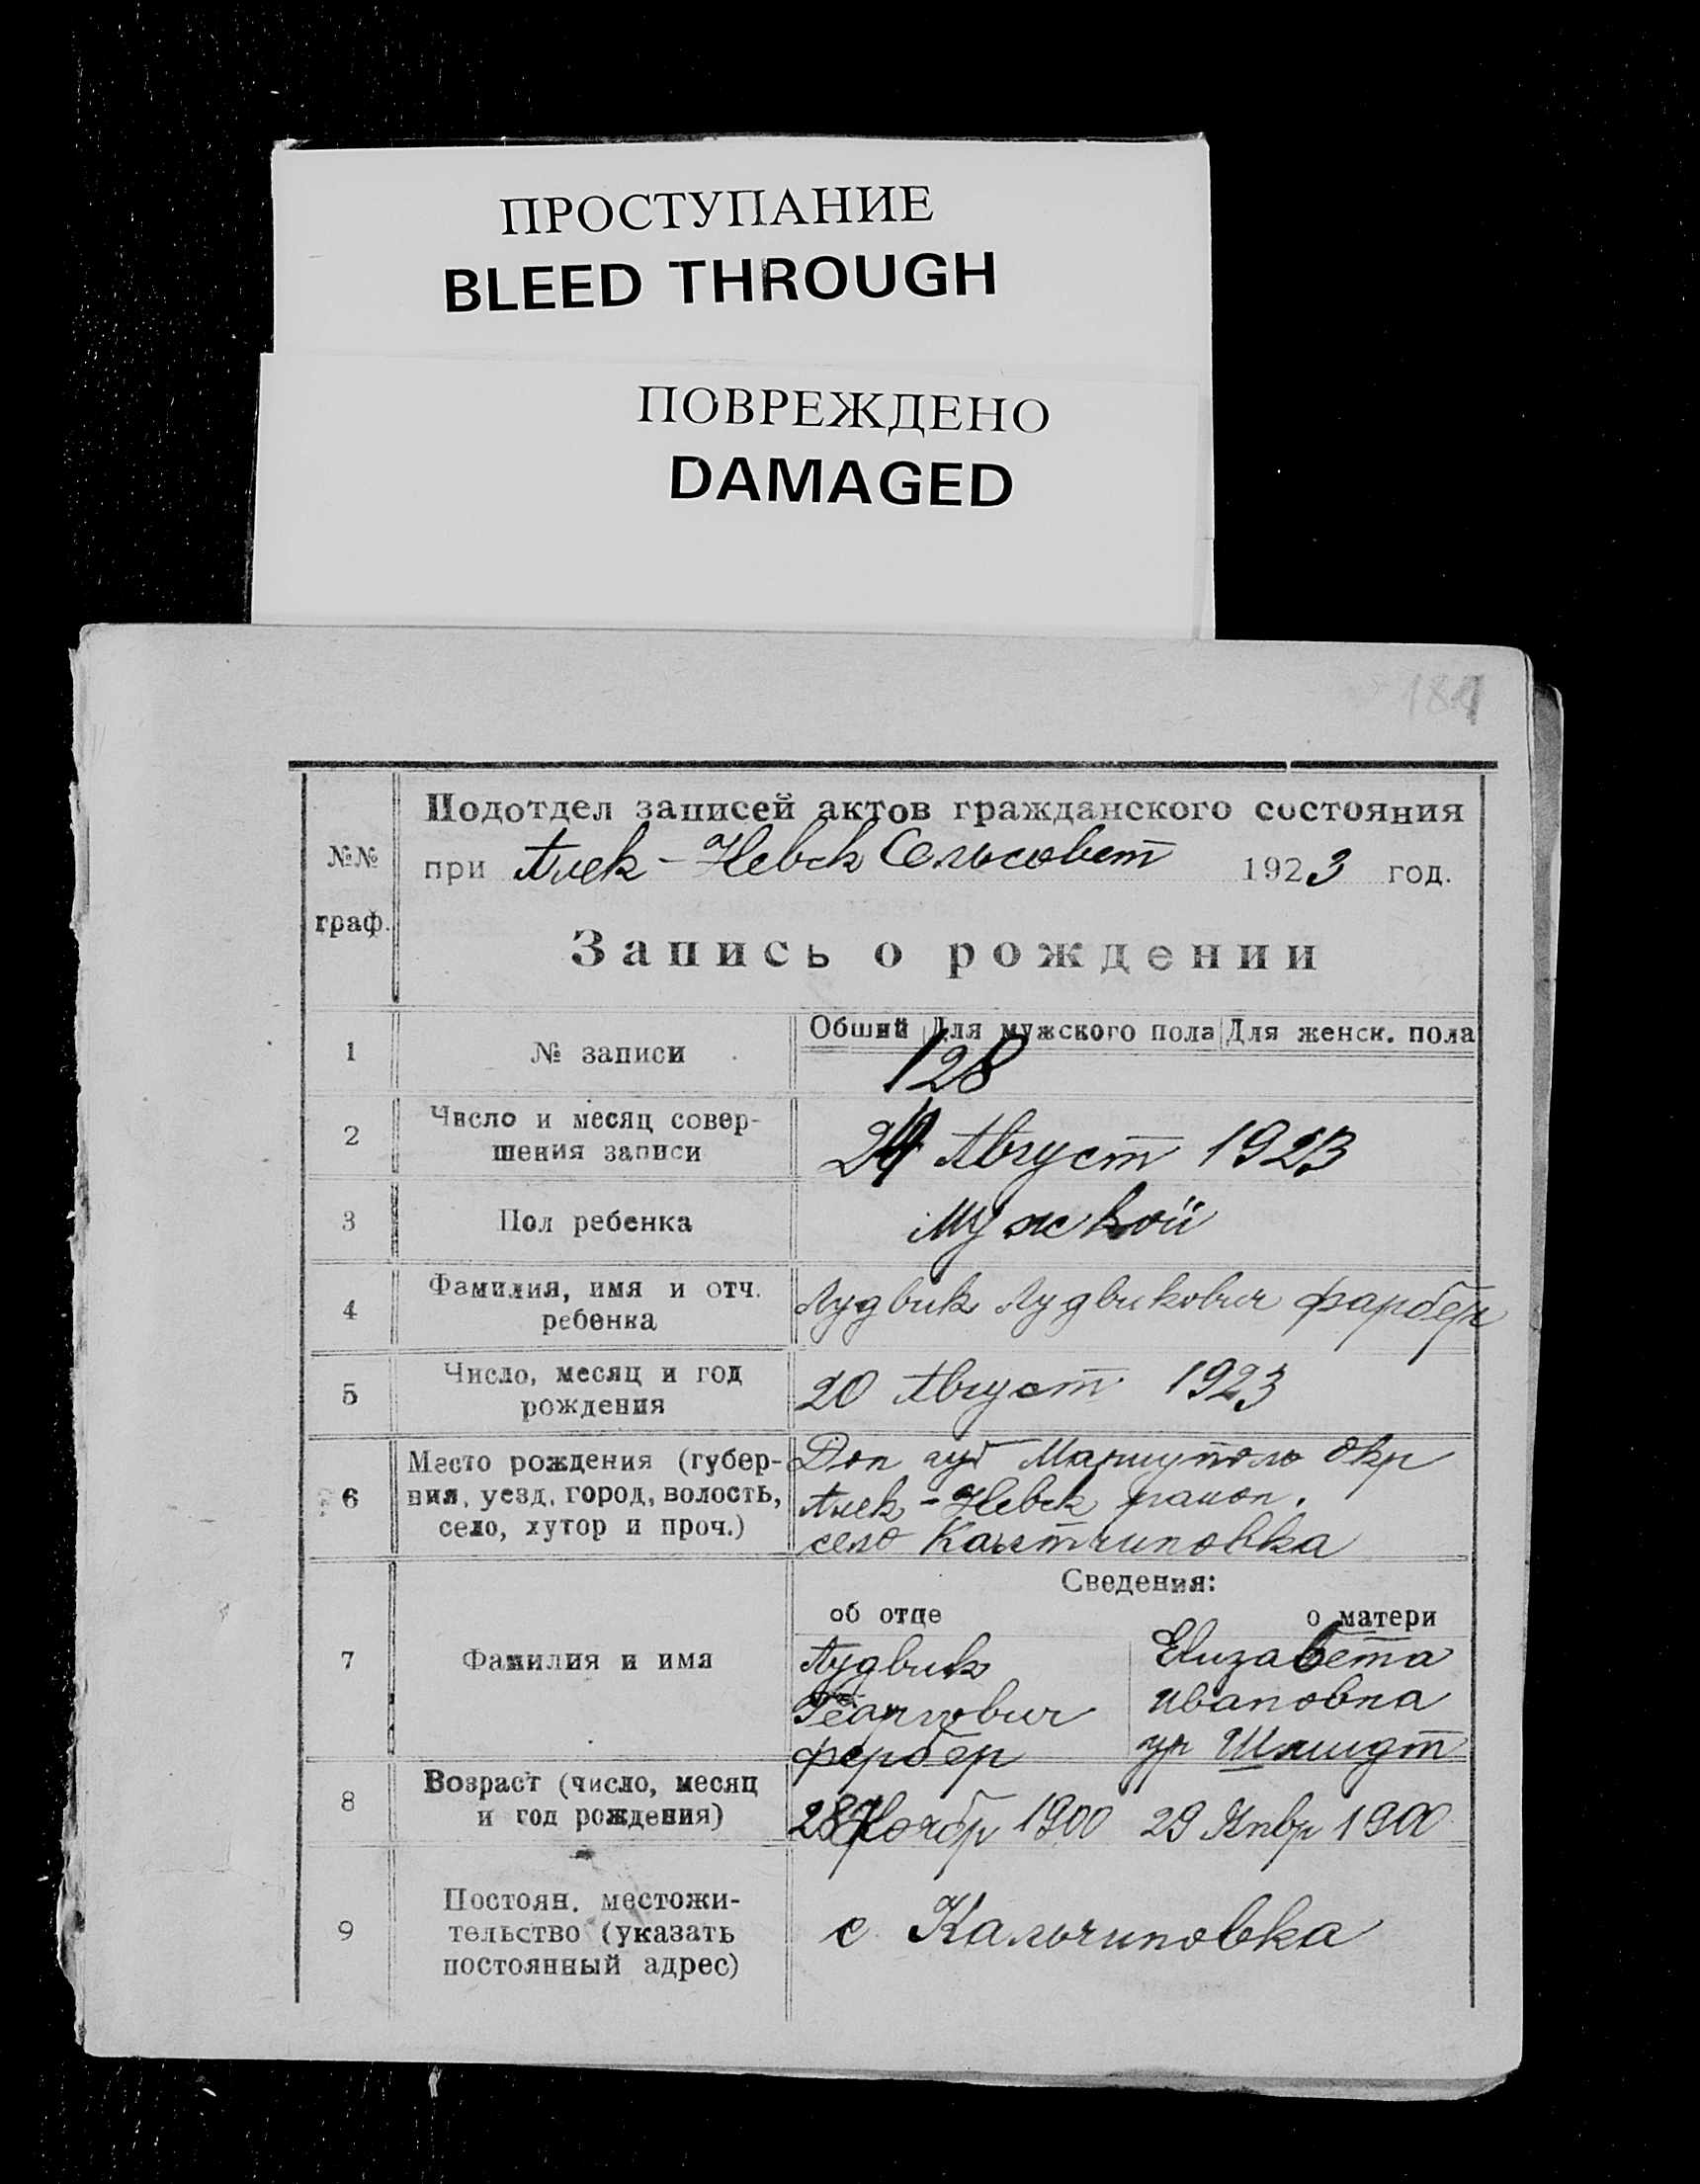 ПРОСТУПАНИЕ
BLEED THROUGH
ПОВРЕЖДЕНО
DAMAGED
Подотдел записей актов гражданского состояния
№№
граф.
при Алек-Невск Сельсовет 1923 год.
Запись о рождении
Общий Для мужского пола Для женск. пола
1 № записи 128
2 Число и месяц совер-
шения записи
Август 1923
3 Пол ребенка Мужской
4 Фамилия, имя и отч.
ребенка
Лудвик Лудвикович Фарбер
5 Число, месяц и год
рождения
20 Август 1923
6 Место рождения (губер-
ния, уезд, город, волость,
село, хутор и проч.)
Дон губ Мариуполь Окр
Алек-Невск район.
село
Сведения:
об отце о матери
7 Фамилия и имя
Лудвик Елизабета
Георгович Ивановна
Фербер ур Шмидт
8 Возраст (число, месяц
и год рождения)
28 Ноябр 1900 29 Янвр 1900
9 Постоян. местожи-
тельство (указать
постоянный адрес)
с Кальчиновка